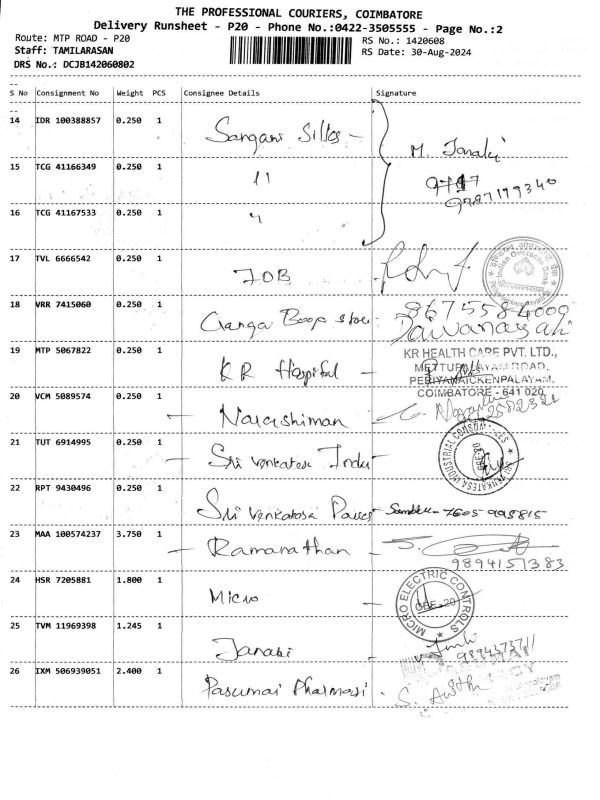 THE PROFESSIONAL COURIERS, COIMBATORE
Delivery Runsheet - P20 - Phone No.:0422-3505555 - Page No.:2
Route: MTP ROAD - P20
RS No.: 1420608
Staff: TAMILARASAN
RS Date: 30-Aug-2024
DRS No.: DCJB142060802
S No Consignment No Weight PCS Consignee Details Signature
14 IDR 100388857 0.250 1 Sangani Silks -
M. Janaki
15 TCG 41166349 0.250 1 11
9787179340
16 TCG 41167533 0.250 1 "
17 TVL 6666542 0.250 1 IOB
Indian Overseas Bank
18 VRR 7415060 0.250 1 Ganga Boop store 8675584009
19 MTP 5067822 0.250 1 KR Hospital - KR HEALTH CARE PVT. LTD.,
METTUPALAYAM ROAD,
PERIYANAICKENPALAYAM,
COIMBATORE - 641 020
20 VCM 5089574 0.250 1 - Narashiman
21 TUT 6914995 0.250 1 - Sri Venkatesa Indu SRI VENKATESA INDUSTRIAL CONSUMABLES
22 RPT 9430496 0.250 1 Sri Venkatosa Paues - 7605 998815
23 MAA 100574237 3.750 1 - Ramanathan - S.
9894151383
24 HSR 7205881 1.800 1 Micro - MICRO ELECTRIC CONTROLS
CBE-20
25 TVM 11969398 1.245 1 Janaki
26 IXM 506939051 2.400 1 Pasumai Pharmasi -